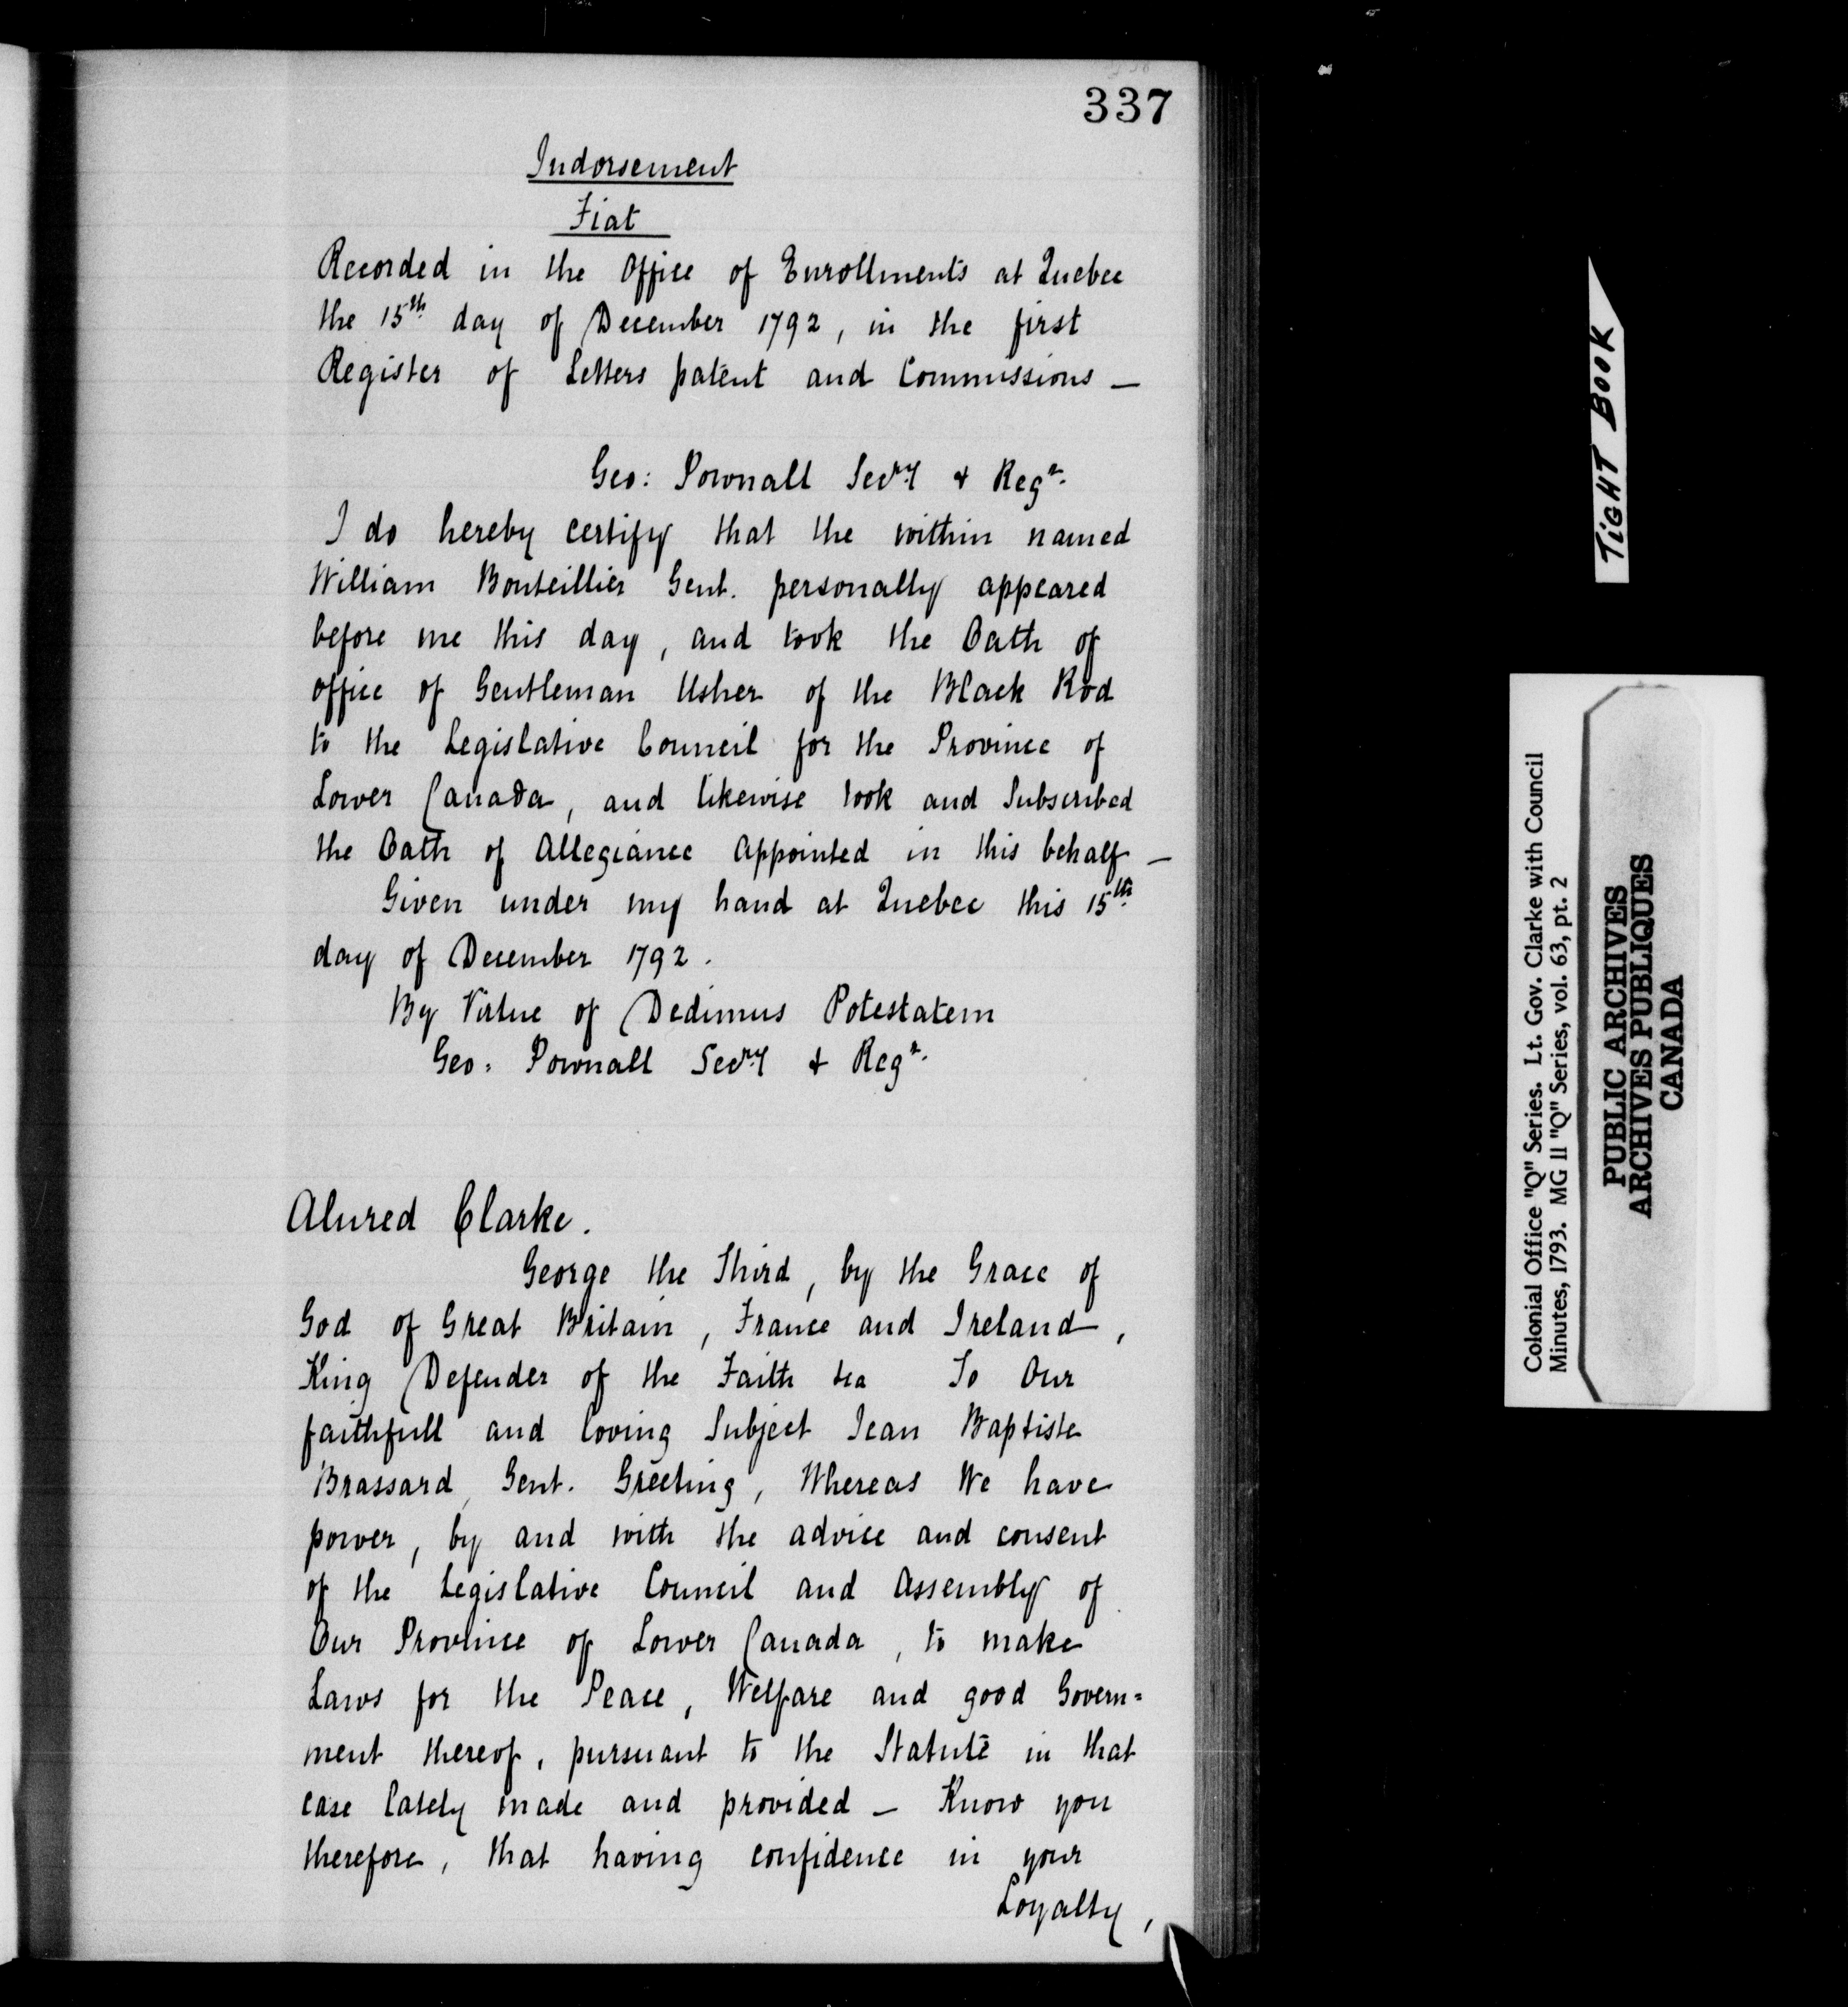 337
Indorsement
Fiat
Recorded in the Office of Enrollments at Quebec
the 15th day of December 1792, in the first
Register of Letters patent and Commissions —
Geo: Pownall Secry & Regr.
I do hereby certify that the within named
William Bouteillier Gent. personally appeared
before me this day, and took the Oath of
office of Gentleman Usher of the Black Rod
to the Legislative Council for the Province of
Lower Canada, and likewise took and Subscribed
the Oath of Allegiance Appointed in this behalf —
Given under my hand at Quebec this 15th
day of December 1792.
By Virtue of Dedimus Potestatem
Geo: Pownall Secry & Regr.
Alured Clarke.
George the Third, by the Grace of
God of Great Britain, France and Ireland,
King Defender of the Faith &ca To Our
faithfull and loving Subject Jean Baptiste
Brassard, Gent. Greeting, Whereas We have
power, by and with the advice and consent
of the Legislative Council and Assembly of
Our Province of Lower Canada, to make
Laws for the Peace, Welfare and good Govern=
ment thereof, pursuant to the Statute in that
case lately made and provided — Know you
therefore, that having confidence in your
Loyalty,
TIGHT BOOK
Colonial Office "Q" Series. Lt. Gov. Clarke with Council
Minutes, 1793. MG 11 "Q" Series, vol. 63, pt. 2
PUBLIC ARCHIVES
ARCHIVES PUBLIQUES
CANADA